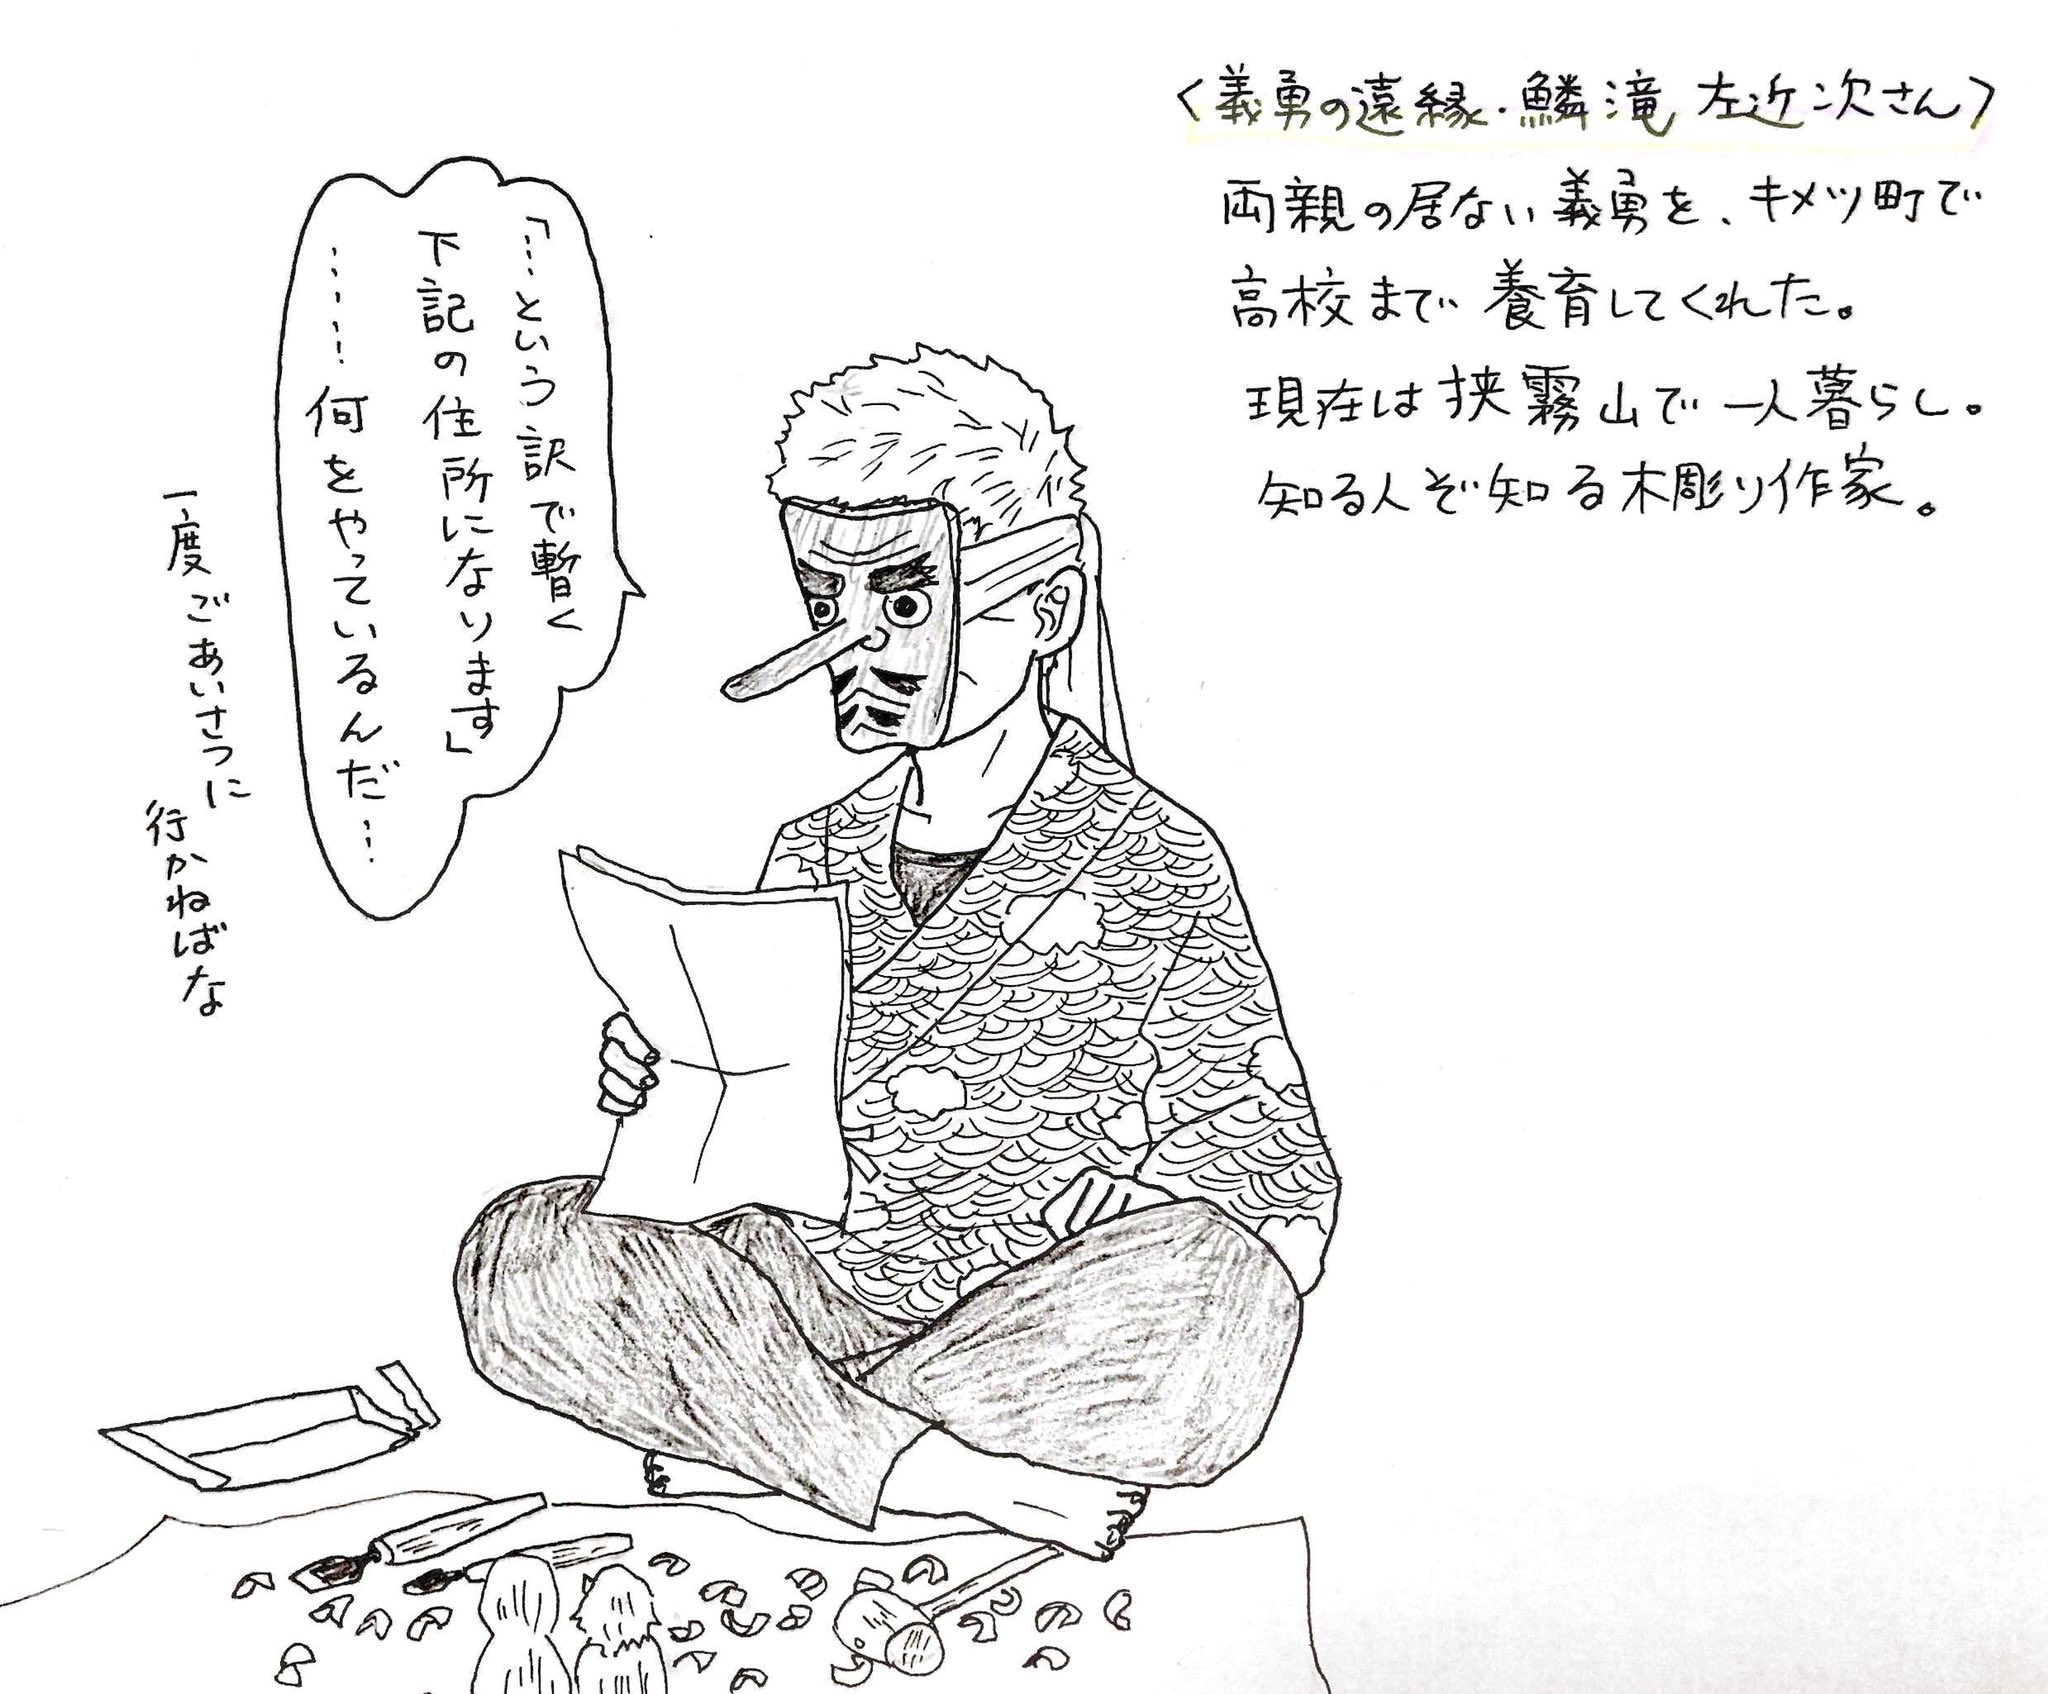 〈義勇の遠縁・鱗滝 左近次さん〉
両親の居ない義勇を、キメツ町で
高校まで養育してくれた。
現在は狭霧山で一人暮らし。
知る人ぞ知る木彫り作家。
「…という訳で暫く
下記の住所になります」
……何をやっているんだ…
一度ごあいさつに
行かねばな